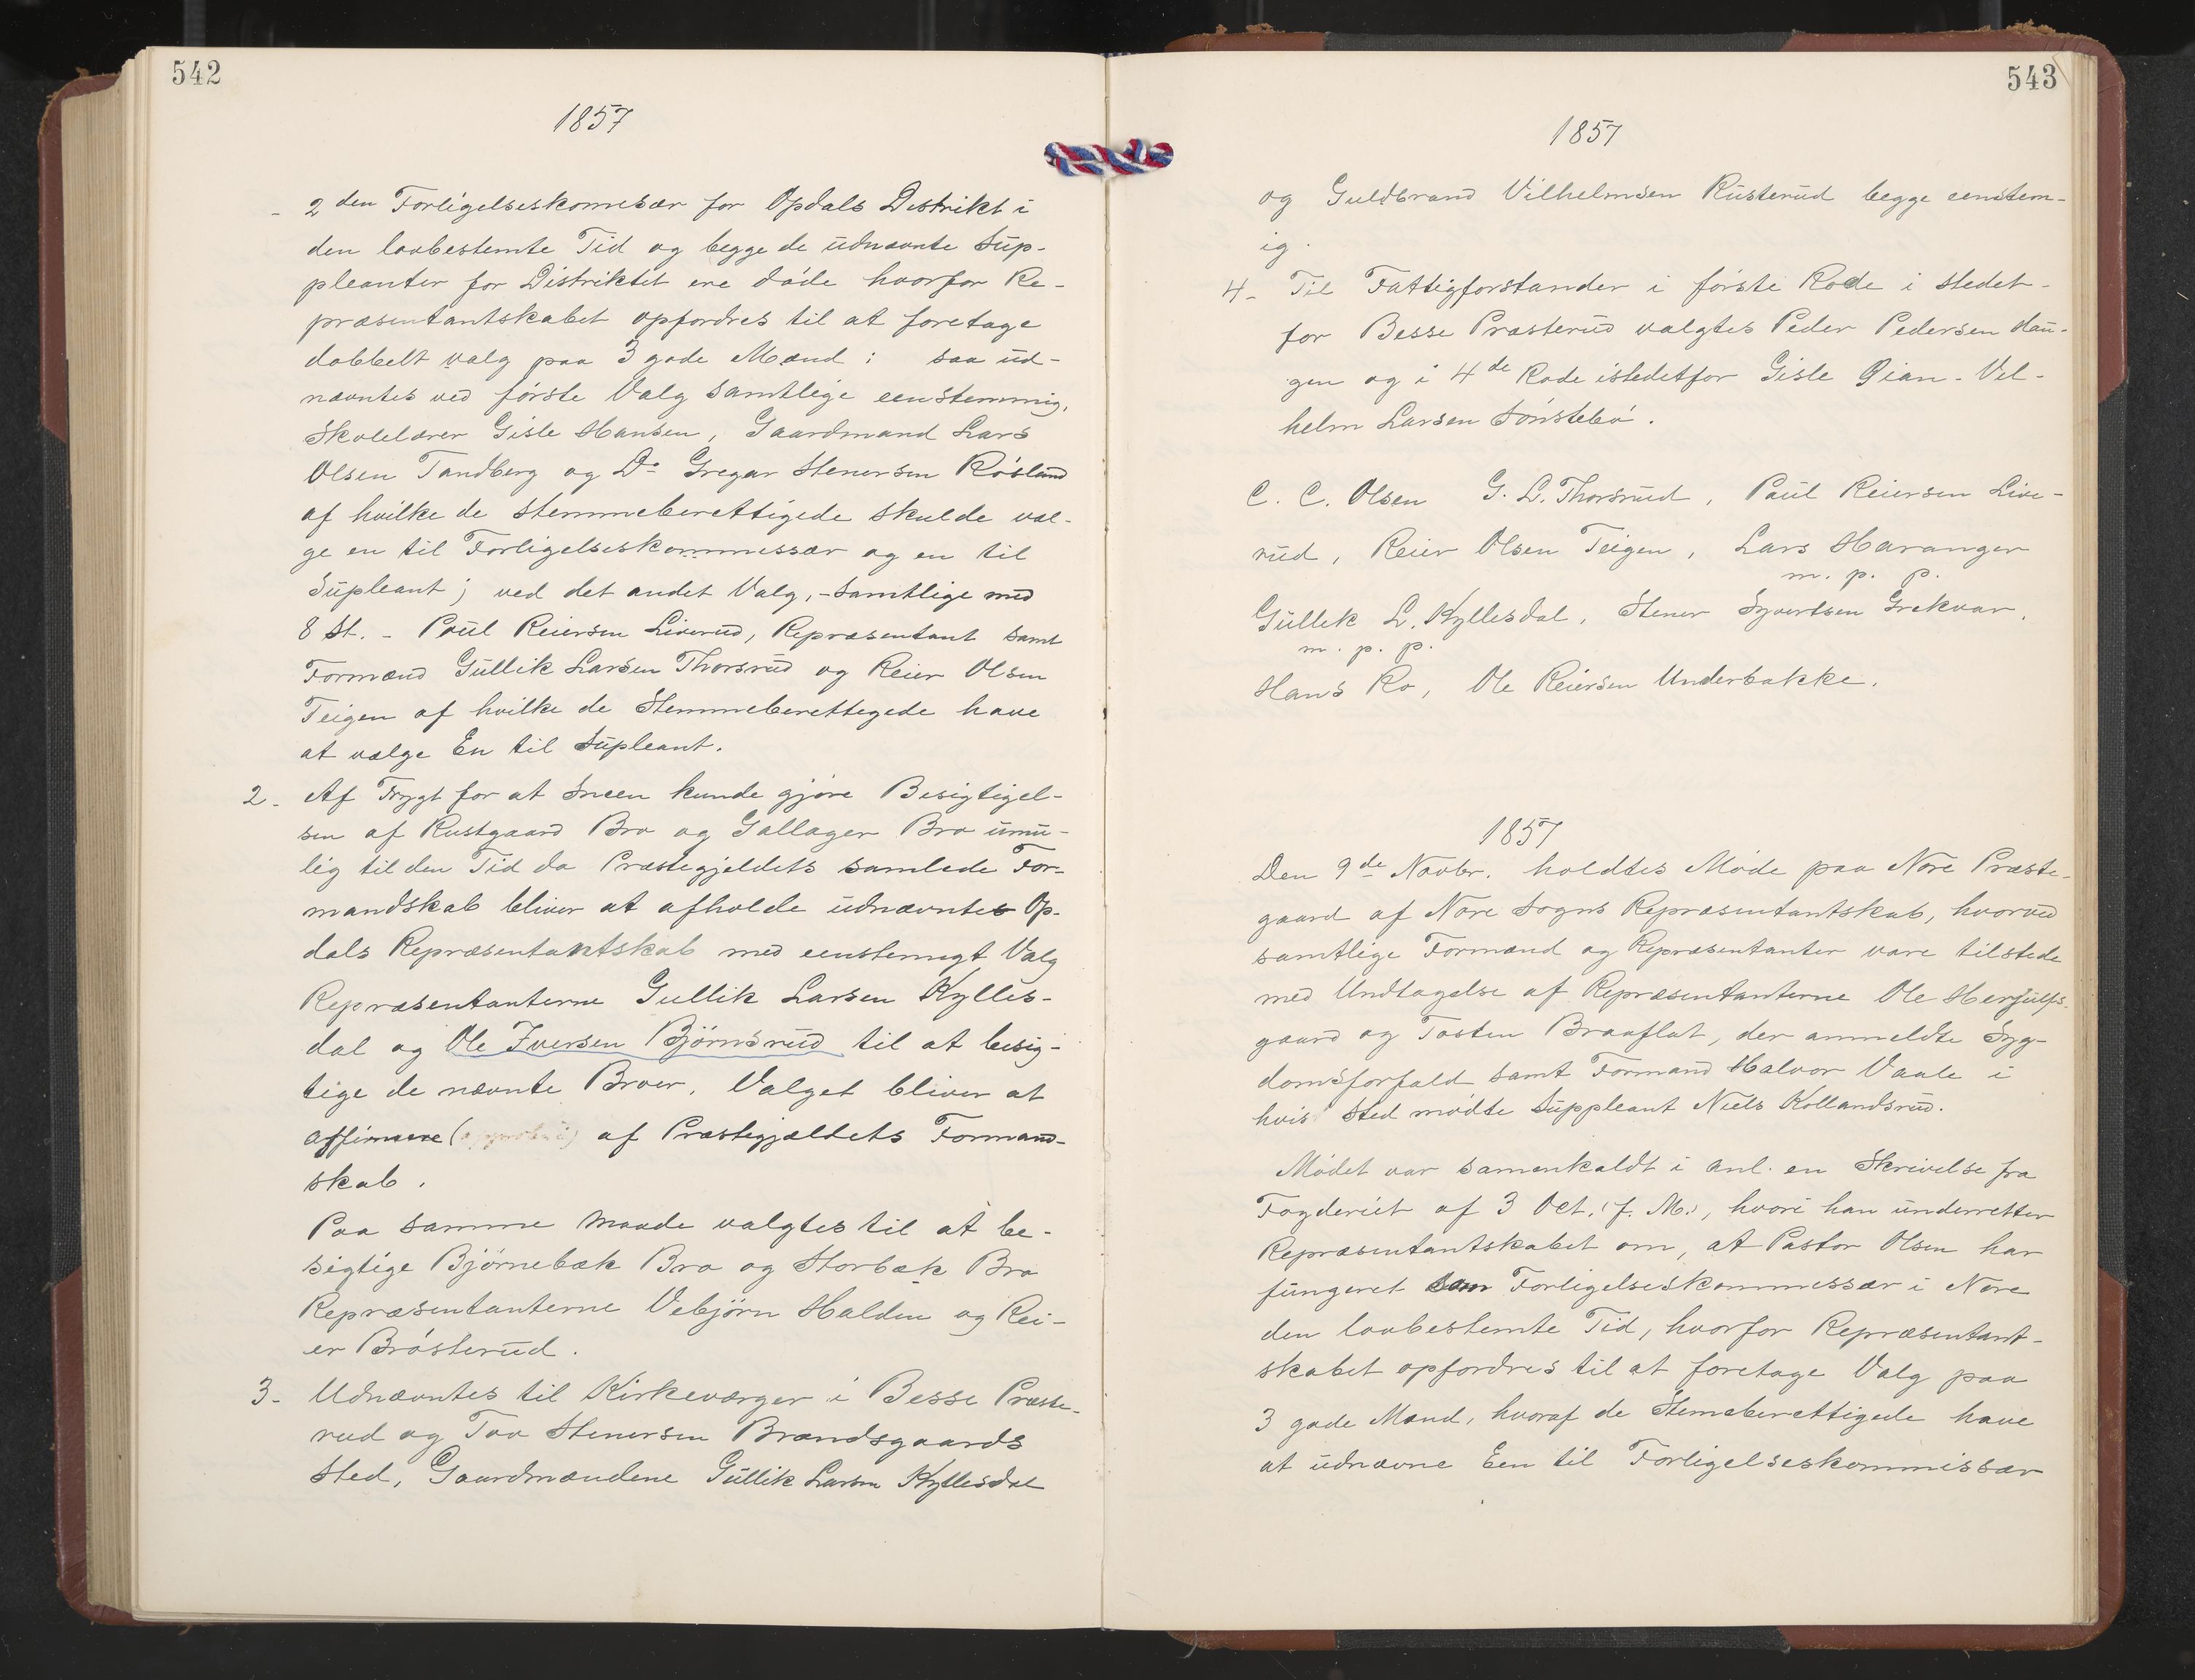 542
1857
- 2 den Forligelseskomesær for Opdals Distrikt i
den lovbestemte Tid og begge de udnævnte Sup-
pleanter for Distriktet ere døde hvorfor Re-
præsentantskabet opfordres til at foretage
dobbelt valg paa 3 gode Mænd: saa ud-
nævntes ved første Valg samtlige eenstemmig,
Skolelærer Gisle Hansen, Gaardmand Lars
Olsen Tandberg og Do Gregar Stenersen Røsland
af hvilke de stemmeberettigede skulde væl-
ge en til Forligelseskommessær og en til
Supleant; ved det andet Valg, - samtlige med
8 St. - Poul Reiersen Liverud, Repræsentant samt
Formænd Gullik Larsen Thorsrud og Reier Olsen
Teigen af hvilke de Stemmeberettegede have
at vælge En til Supleant.
2. Af Frygt for at Sneen kunde gjøre Besigtigel-
sen af Rustgaard Bro og Gallager Bro umu-
lig til den Tid da Præstegjeldets samlede For-
mandskab bliver at afholde udnævntes Op-
dals Repræsentantskab med eenstemigt Valg
Repræsentanterne Gullik Larsen Kylles-
dal og Ole Iversen Bjørnsrud til at besig-
tige de nævnte Broer. Valget bliver at
affirmere ( ) af Præstegjældets Formand-
skab.
Paa samme Maade valgtes til at be-
sigtige Bjørnebæk Bro og Storbæk Bro
Repræsentanterne Vebjørn Halden og Rei-
er Brøsterud.
3- Udnævntes til Kirkeværger i Besse Præste-
rud og Tov Stenersen Brandsgaards
Sted, Gaardmændene Gullik Larsen Kyllesdal
543
1857
og Guldbrand Vilhelmsen Rusterud begge eenstem-
ig.
4- Til Fattigforstander i første Rode i stedet-
for Besse Præsterud valgtes Peder Pedersen Hau-
gen og i 4de Rode istedetfor Gisle Gian- Vel-
helm Larsen Sønstebø.
C. C. Olsen G. L. Thorsrud, Paul Reiersen Live-
rud, Reier Olsen Teigen, Lars Haranger
m. p. p.
Gullek L. Kyllesdal, Stener Syvertsen Grekvar,
m. p. p.
Hans Ro, Ole Reiersen Underbakke.
1857
Den 9de Novbr. holdtes Møde paa Nore Præste-
gaard af Nore Sogns Repræsentantskab, hvorved
samtlige Formænd og Repræsentanter vare tilstede
med Undtagelse af Repræsentanterne Ole Herjulfs-
gaard og Tosten Braaflat, der anmeldte Syg-
domsforfald samt Formand Halvor Vaale i
hvis Sted mødte Suppleant Niels Kollandsrud.
Mødet var samenkaldt i anl. en Skrivelse fra
Fogderiet af 3 Oct. (f. M.), hvori han underretter
Repræsentantskabet om, at Pastor Olsen har
fungeret som Forligelseskommessær i Nore
den lovbestemte Tid, hvorfor Repræsentant-
skabet opfordres til at foretage Valg paa
3 gode Mænd, hvoraf de Stemeberettigede have
at udnævne Een til Forligelseskommissær